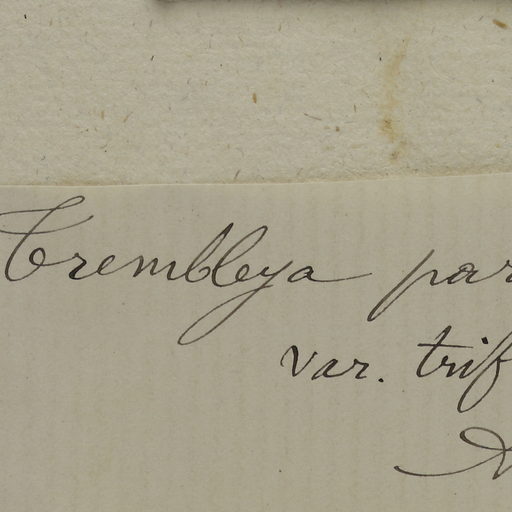 Trembleya par
var. trif